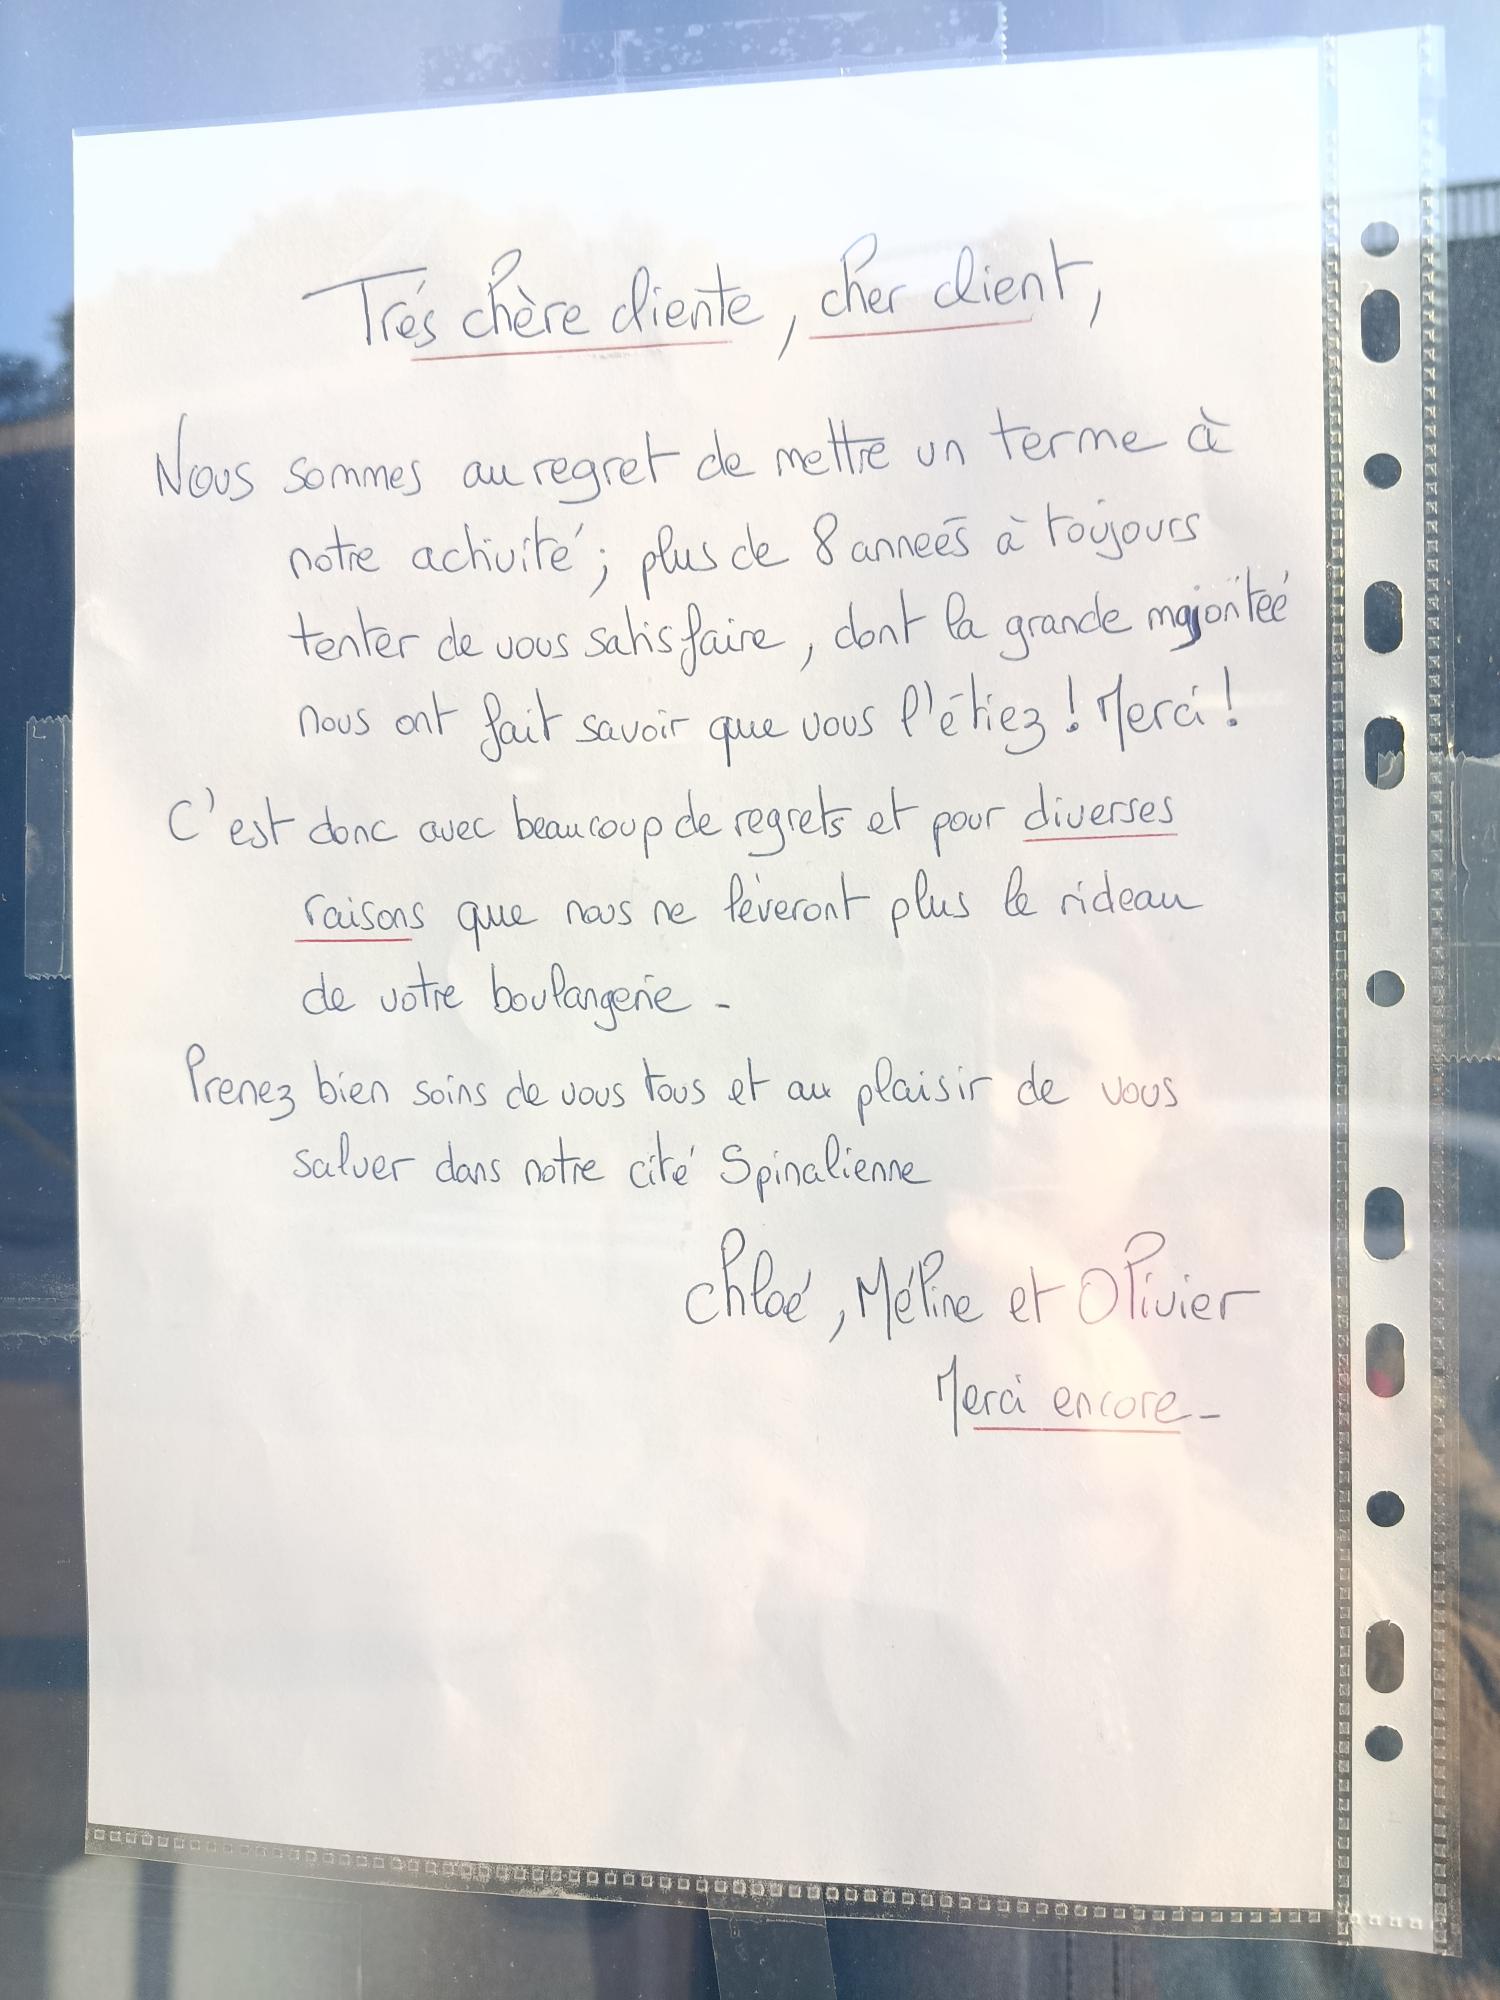 Trés chère cliente, cher client,
Nous sommes au regret de mettre un terme à
notre activité; plus de 8 anneés à toujours
tenter de vous satisfaire, dont la grande majoritée
nous ont fait savoir que vous l'étiez! Merci!
C'est donc avec beaucoup de regrets et pour diverses
raisons que nous ne lèveront plus le rideau
de votre boulangerie -
Prenez bien soins de vous tous et au plaisir de vous
saluer dans notre cité Spinalienne
Chloé, Méline et Olivier
Merci encore -